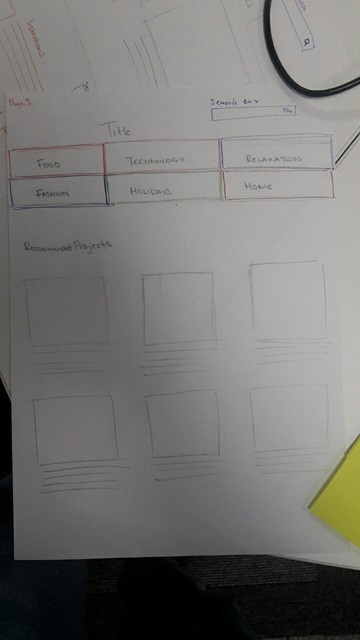 Page 1
Search Box
Title
FOOD
TECHNOLOGY
RELAXATION
FASHION
HOLIDAYS
HOME
Recommended Projects